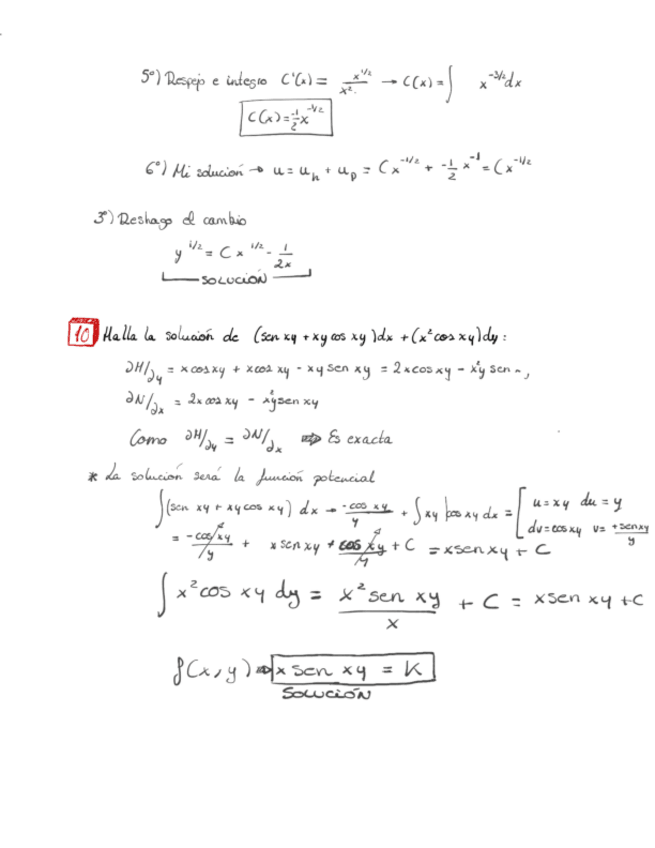 5º) Despejo e integro C'(x) = x^{1/2}/x². → C(x) = ∫ x^{-3/2}dx
C(x) = -1/2 x^{-1/2}
6º) Mi solución → u = u_h + u_p = C x^{-1/2} + -1/2 x^{-1} = C x^{-1/2}
3º) Deshago el cambio
y^{1/2} = C x^{1/2} - 1/2x
SOLUCIÓN
10 Halla la solución de (sen xy + xy cos xy)dx + (x² cos xy)dy:
∂M/∂y = x cos xy + x cos xy - xy sen xy = 2x cos xy - x²y sen ",
∂N/∂x = 2x cos xy - x²y sen xy
Como ∂M/∂y = ∂N/∂x ⇒ Es exacta
* La solución será la función potencial
∫(sen xy + xy cos xy) dx → -cos xy/y + ∫ xy cos xy dx = [ u = xy du = y
dv = cos xy v = +sen xy/y
= -cos xy/y + x sen xy + cos xy/y + C = x sen xy + C
∫ x² cos xy dy = x² sen xy/x + C = x sen xy + C
f(x,y) ⇒ x sen xy = K
SOLUCIÓN